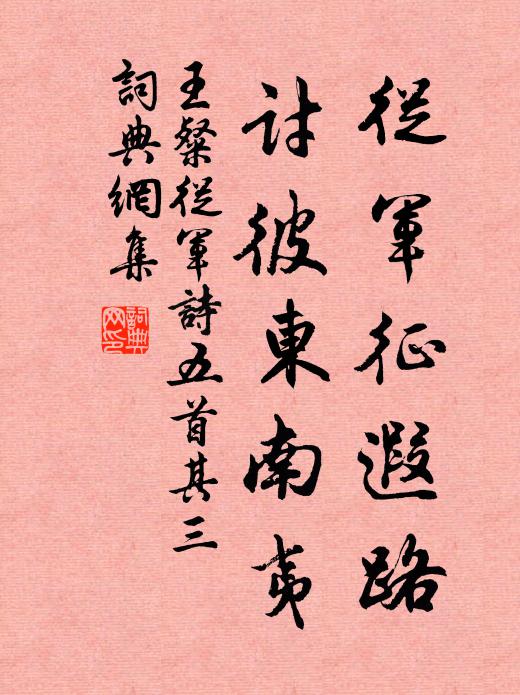 從軍征遐路
討彼東南夷
王粲從軍詩五首其三
詞典網集
詞典
网印